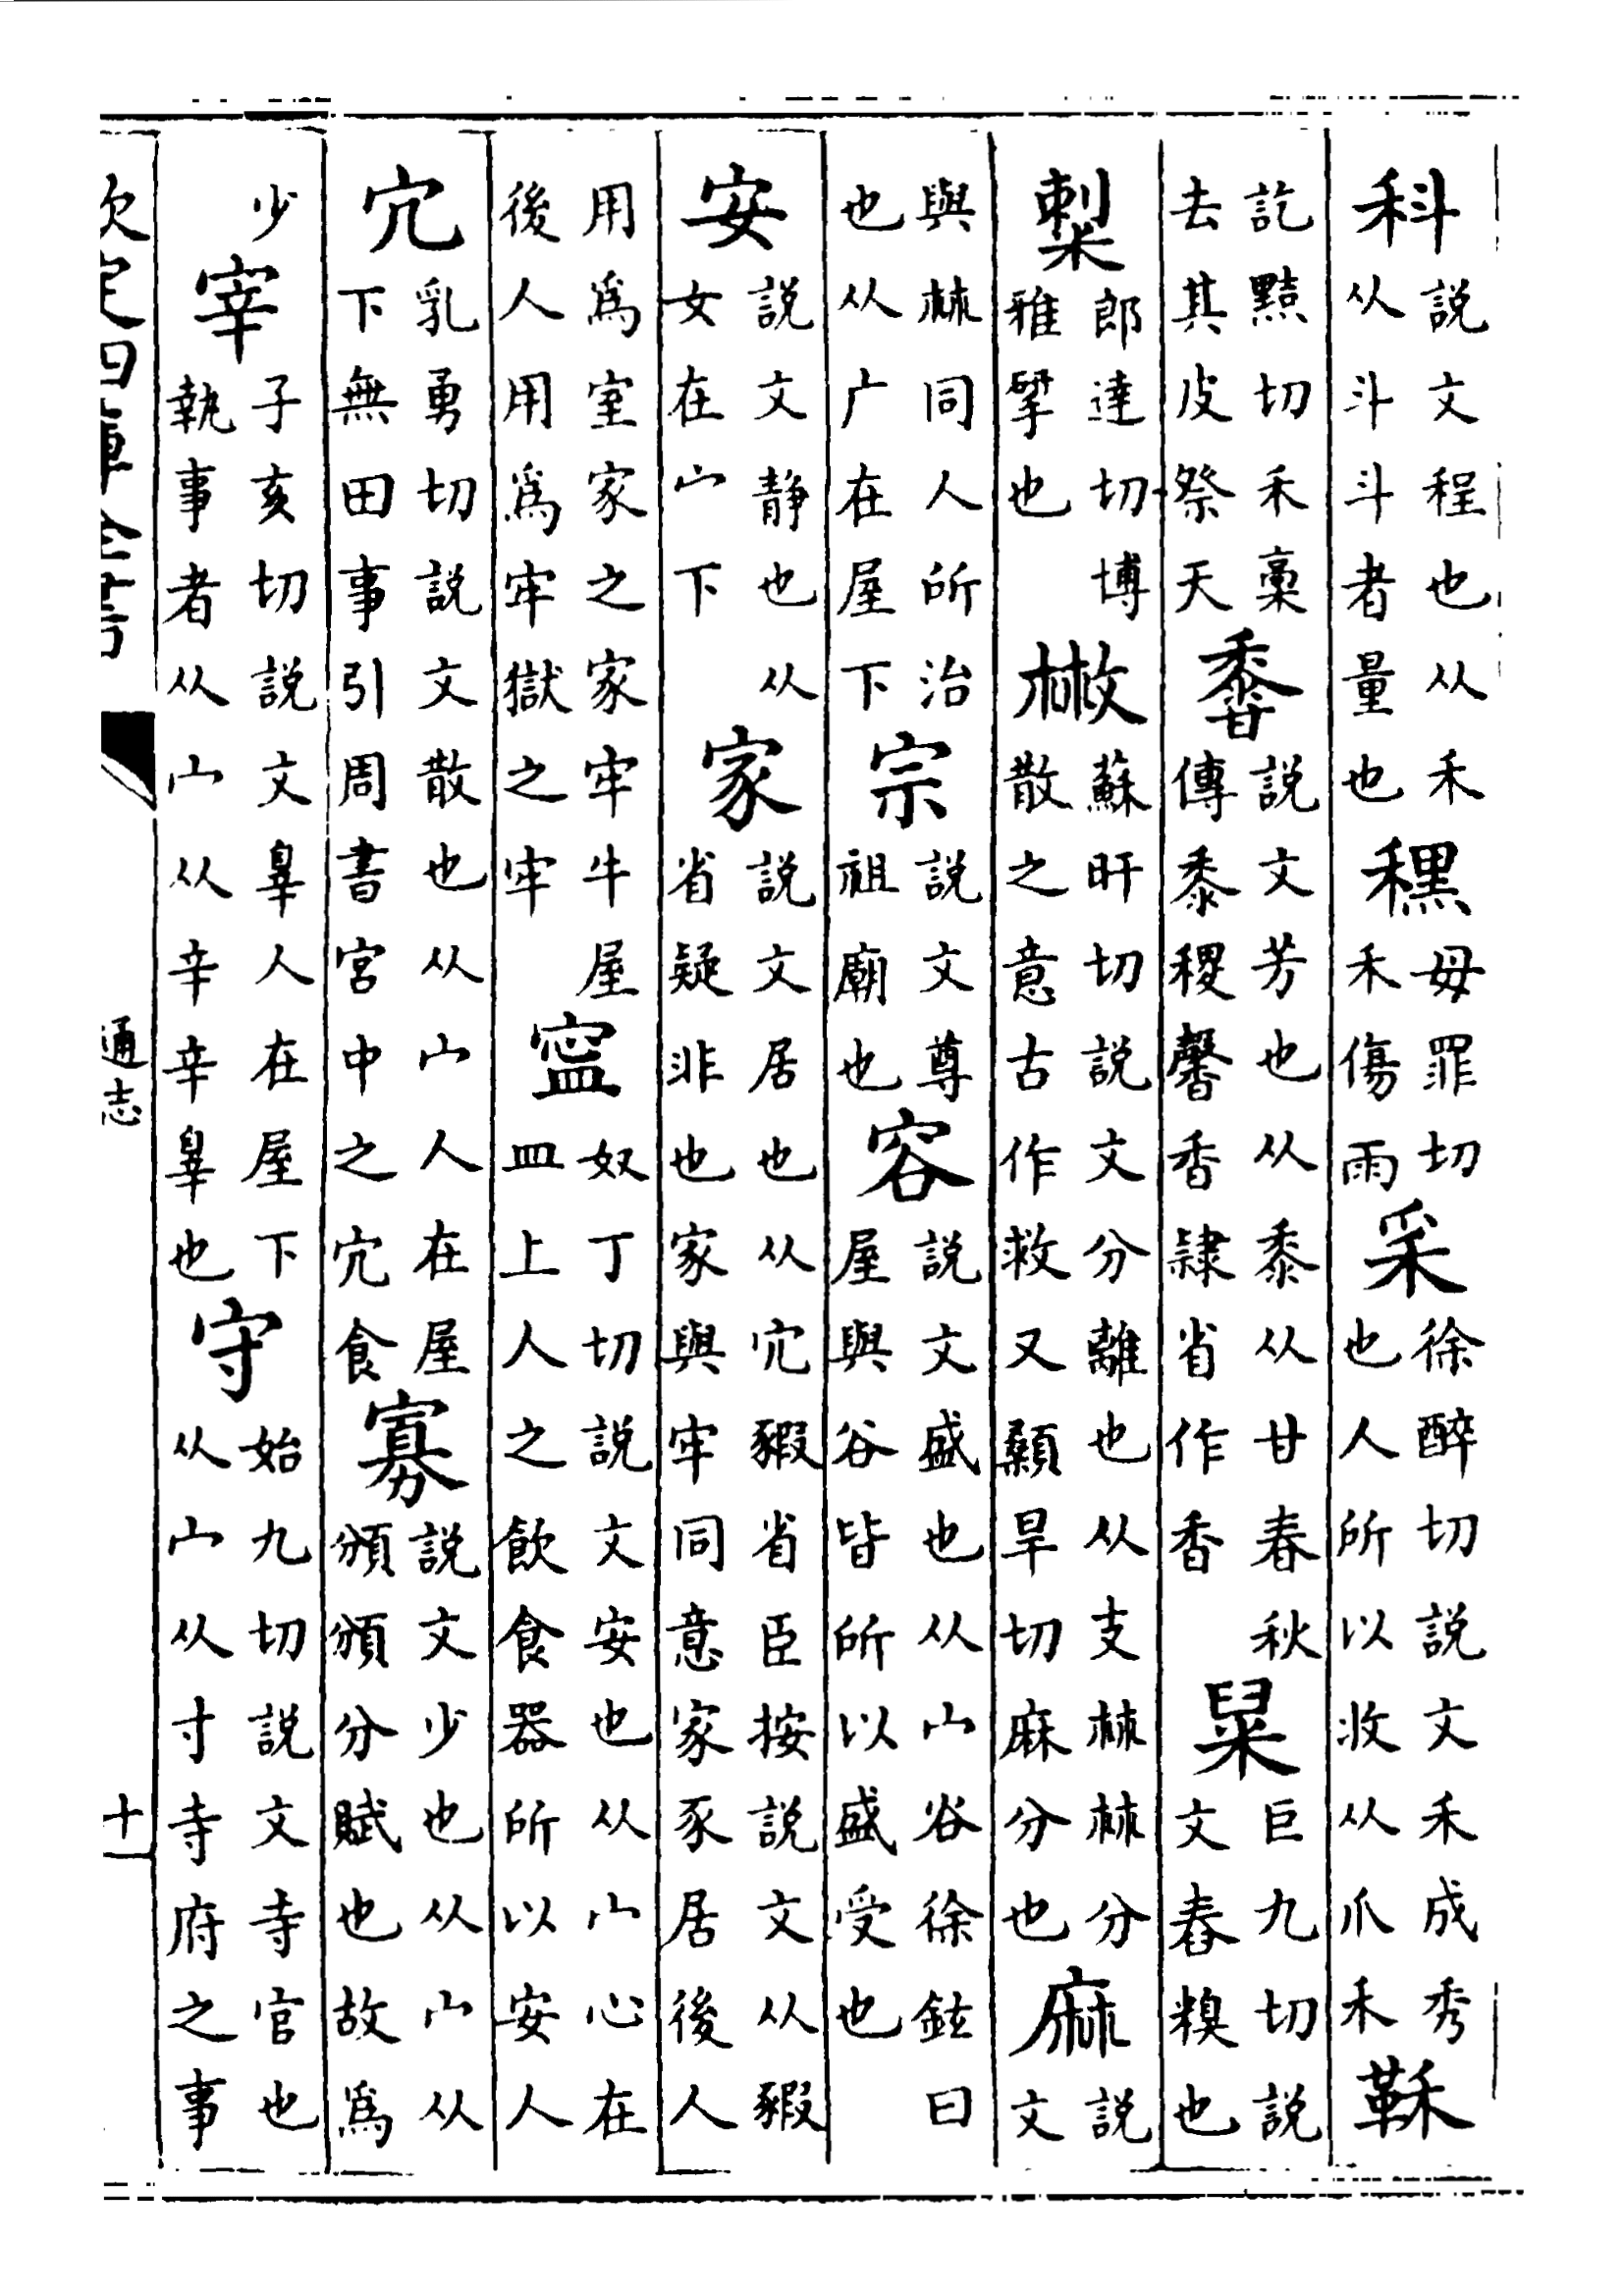 科說文程也从禾从斗斗者量也䆀母罪切禾傷雨采徐醉切說文禾成秀也人所以收从爪禾鞂
訖黠切禾稾去其皮祭天𪏽說文芳也从黍从甘春秋傳黍稷馨香隸省作香巨九切說文舂糗也
郎達切博雅也㪔蘇旰切說文分離也从支𣏟𣏟分散之意古作又顙旱切麻分也麻說文
與𣏟同人所治也从广在屋下宗說文尊祖廟也容說文盛也从宀谷徐鉉曰屋與谷皆所以盛受也
安說文靜也从女在宀下家說文居也从宂豭省臣按說文从豭省疑非也家與牢同意家豕居後人
用爲室家之家牢牛屋後人用爲牢獄之牢寍奴丁切說文安也从宀心在皿上人之飲食器所以安人
宂乳勇切說文散也从宀人在屋下無田事引周書宮中之宂食寡說文少也从宀从頒頒分賦也故爲
少宰子亥切說文辠人在屋下執事者从宀从辛辛辠也守始九切說文寺官也从宀从寸寺府之事
欽定四庫全書
通志
十一